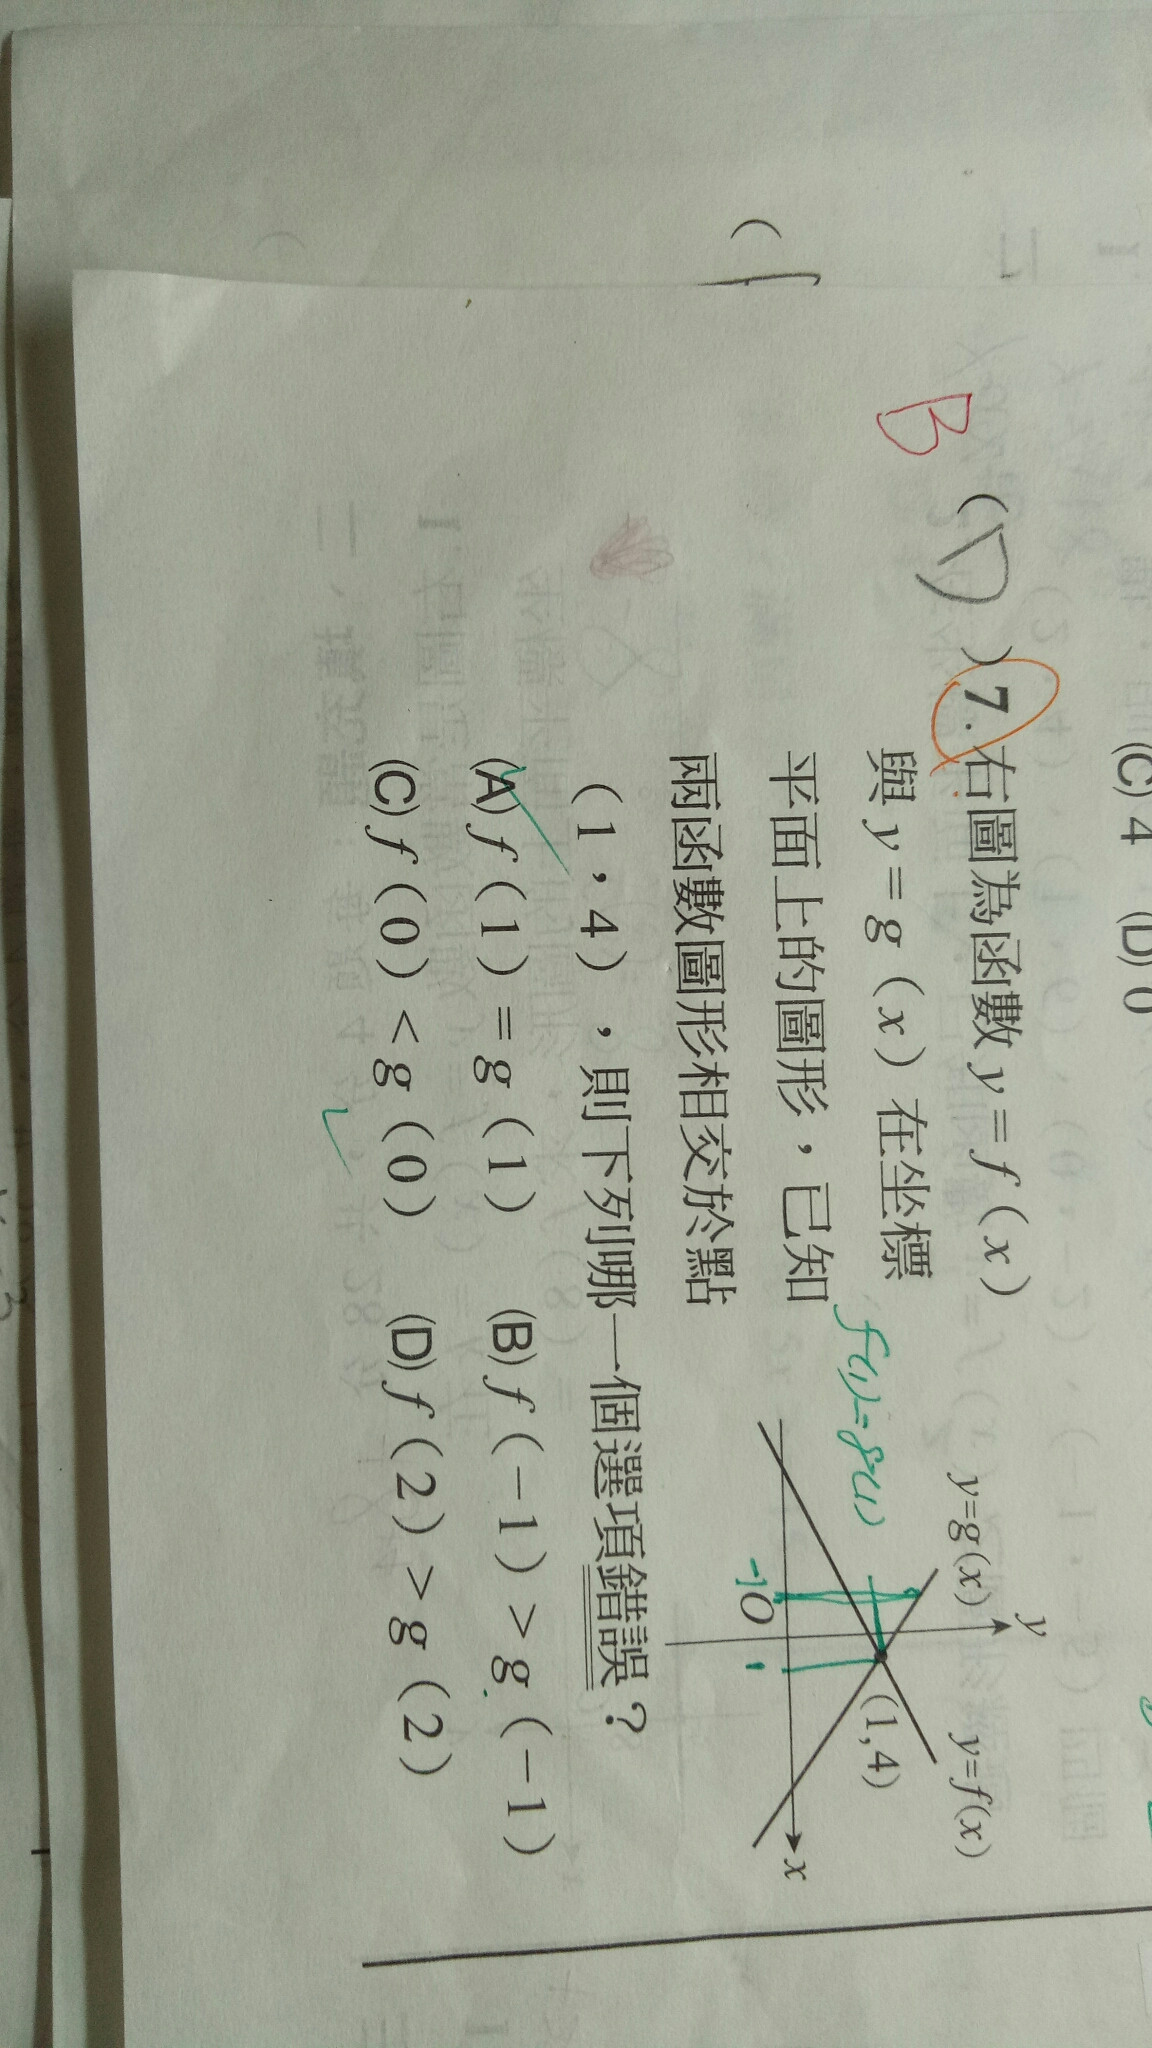 (C) 4 (D) 0
B ( D ) 7. 右圖為函數 y = f ( x )
與 y = g ( x ) 在坐標
平面上的圖形，已知
兩函數圖形相交於點
( 1，4 )，則下列哪一個選項錯誤？
(A) f ( 1 ) = g ( 1 ) (B) f ( −1 ) > g ( −1 )
(C) f ( 0 ) < g ( 0 ) (D) f ( 2 ) > g ( 2 )
y
y=g(x) y=f(x)
f(1)=g(1)
(1,4)
x
-1 O 1